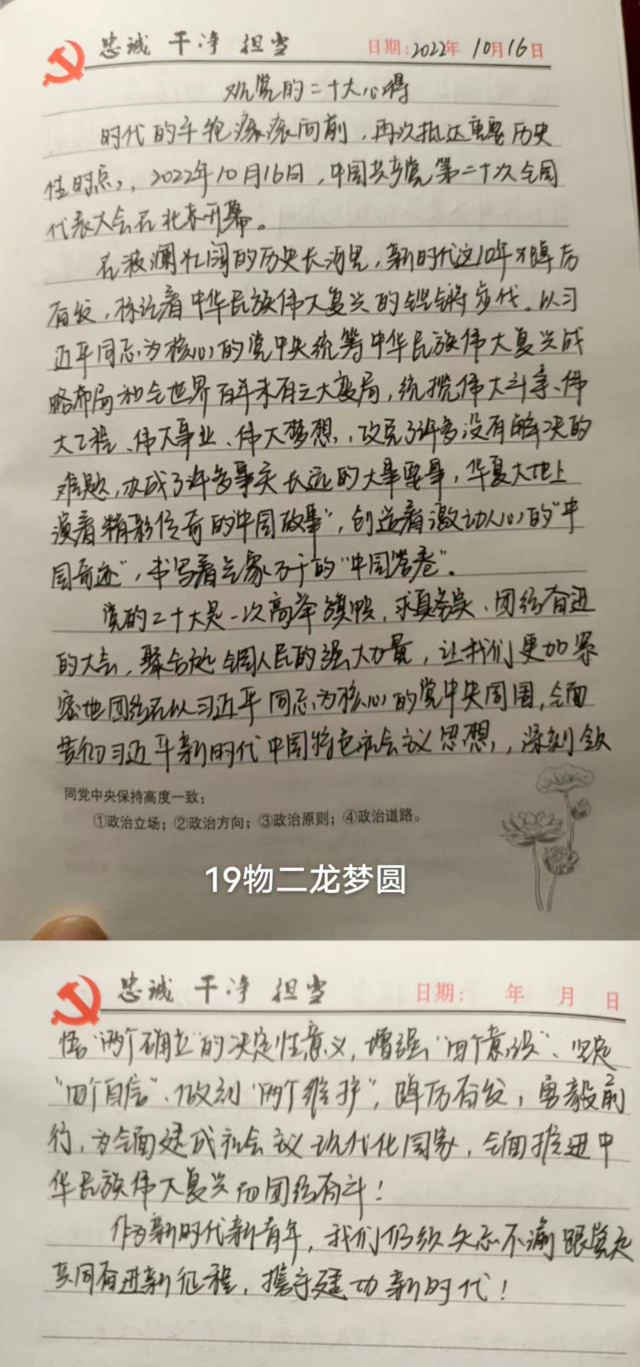 忠诚 干净 担当 日期：2022年10月16日
观党的二十大心得
时代的车轮滚滚向前，再次抵达重要历史
性时点，2022年10月16日，中国共产党第二十次全国
代表大会在北京开幕。
在波澜壮阔的历史长河里，新时代这10年踔厉
奋发，标注着中华民族伟大复兴的铿锵步伐。以习
近平同志为核心的党中央统筹中华民族伟大复兴战
略布局和全世界百年未有之大变局，统揽伟大斗争、伟
大工程、伟大事业、伟大梦想，攻克了许多没有解决的
难题，办成了许多事关长远的大事要事，华夏大地上
演着精彩传奇的"中国故事"，创造着激动人心的"中
国奇迹"，书写着气象万千的"中国答卷"。
党的二十大是一次高举旗帜，求真务实、团结奋进
的大会，聚合起全国人民的强大力量，让我们更加紧
密地团结在以习近平同志为核心的党中央周围，全面
贯彻习近平新时代中国特色社会主义思想，深刻领
同党中央保持高度一致：
①政治立场；②政治方向；③政治原则；④政治道路。
19物二龙梦圆
忠诚 干净 担当 日期： 年 月 日
悟"两个确立"的决定性意义，增强"四个意识"、坚定
"四个自信"、做到"两个维护"，踔厉奋发，勇毅前
行，为全面建成社会主义现代化国家，全面推进中
华民族伟大复兴而团结奋斗！
作为新时代新青年，我们仍须矢志不渝跟党走
共同奋进新征程，携手建功新时代！